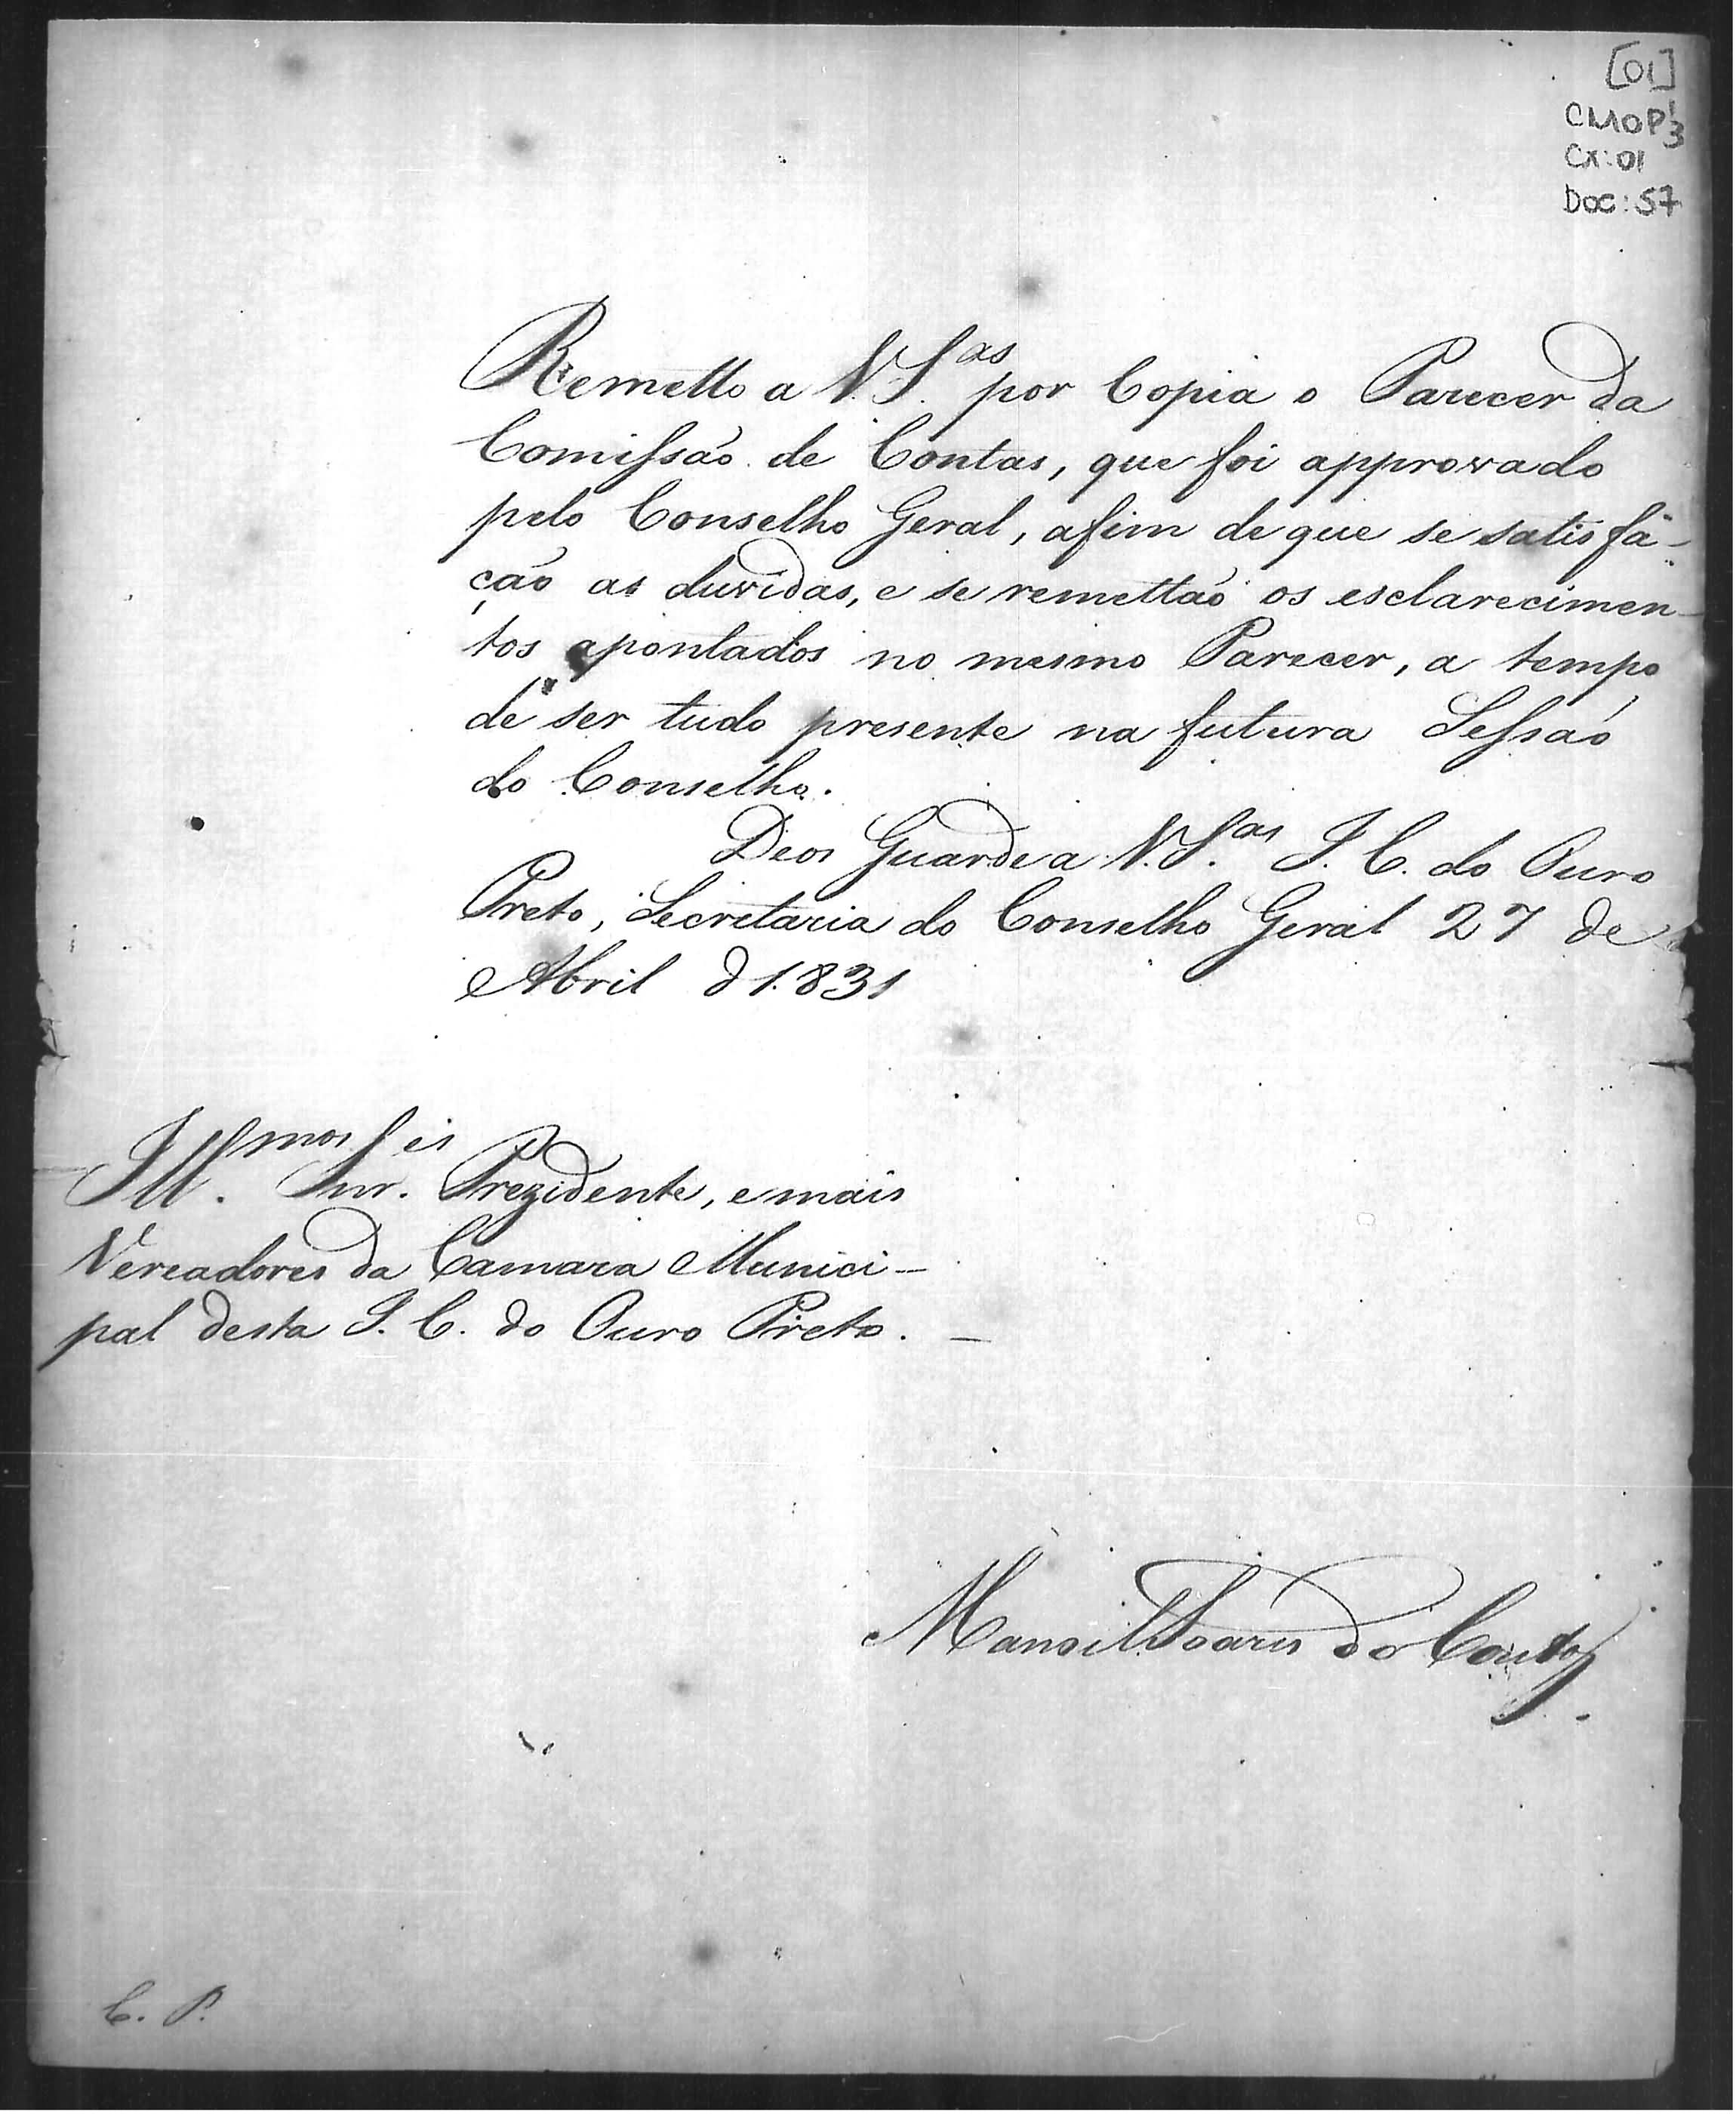 [01]
CMOP 1/3
Cx: 01
Doc: 57
Remetto a V. S.as por Copia o Parecer da
Comissaõ de Contas, que foi approvado
pelo Conselho Geral, afim de que se satisfa-
çaõ as duvidas, e se remettaõ os esclarecimen-
tos apontados no mesmo Parecer, a tempo
de ser tudo presente na futura Sessaõ
do Conselho.
Deos Guarde a V. S.as I. C. do Ouro
Preto, Secretaria do Conselho Geral 27 de
Abril d 1.831
Ill.mos Snr.es Prezidente, e mais
Vereadores da Camara Munici-
pal desta I. C. do Ouro Preto.
Manoel Soares do Couto
C. P.